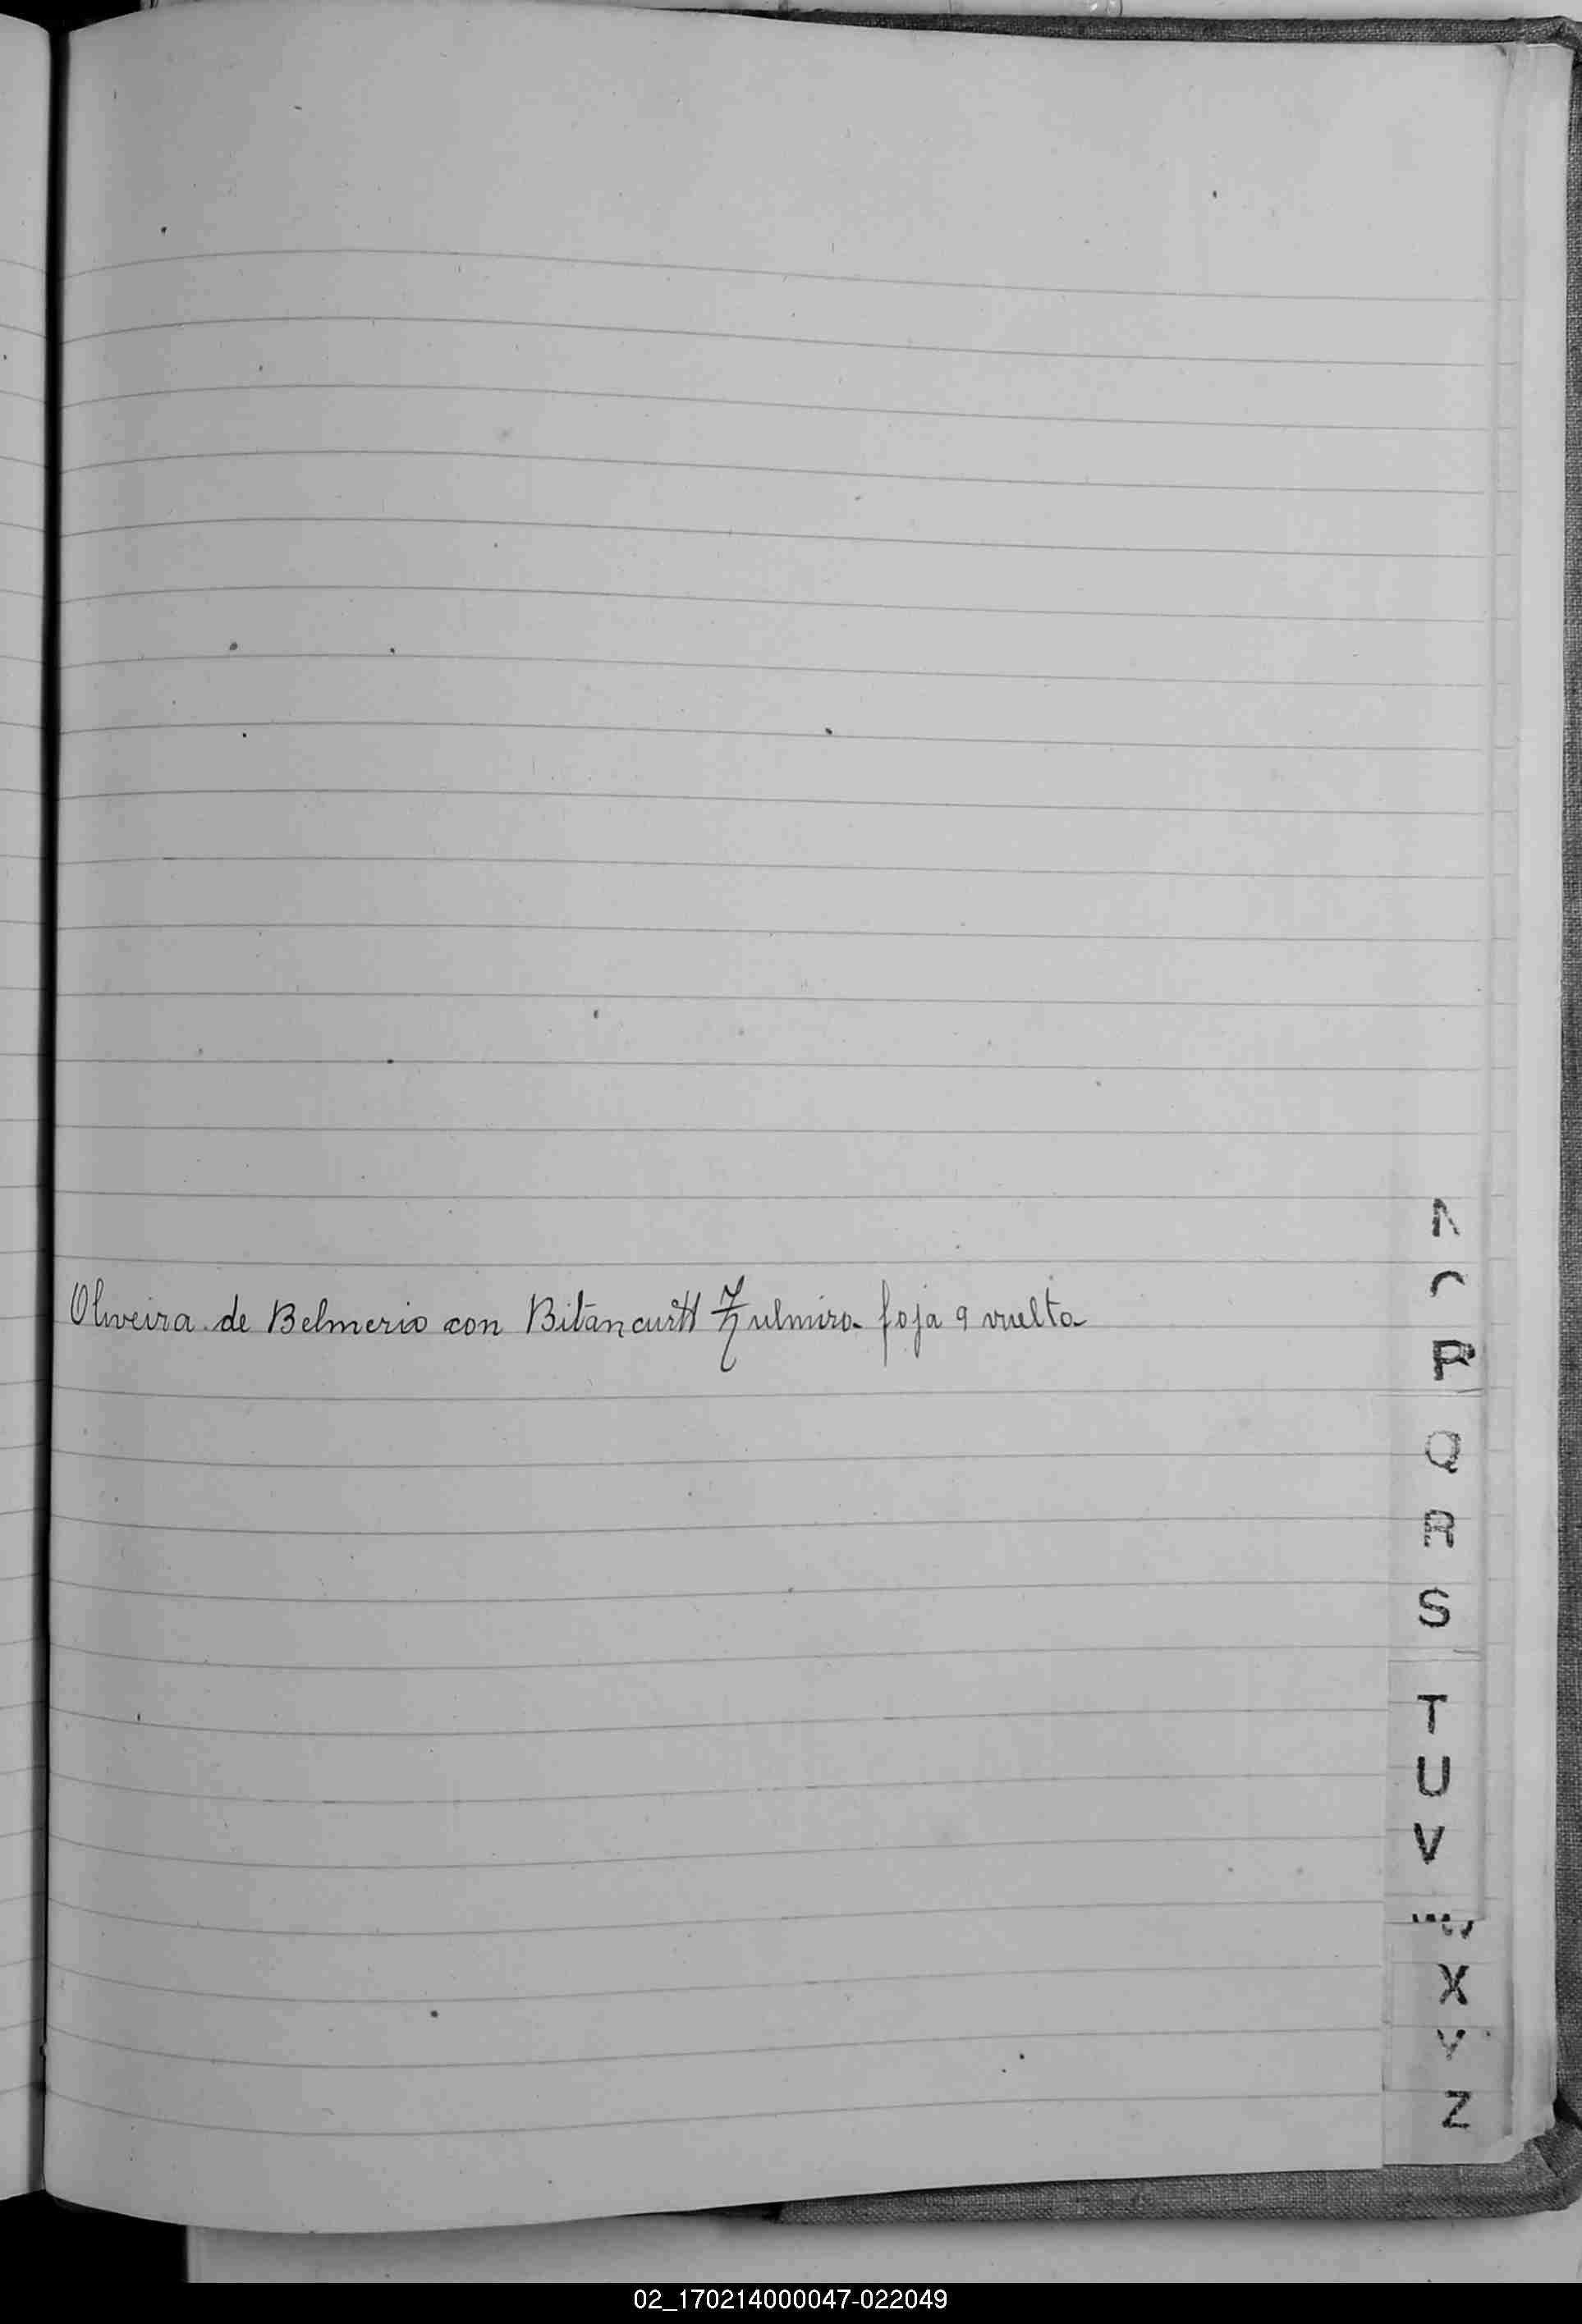 Oliveira de Belmerio con Bitancurtt Zulmira foja 9 vuelta
P
Q
R
S
T
U
V
X
Y
Z
02_170214000047-022049